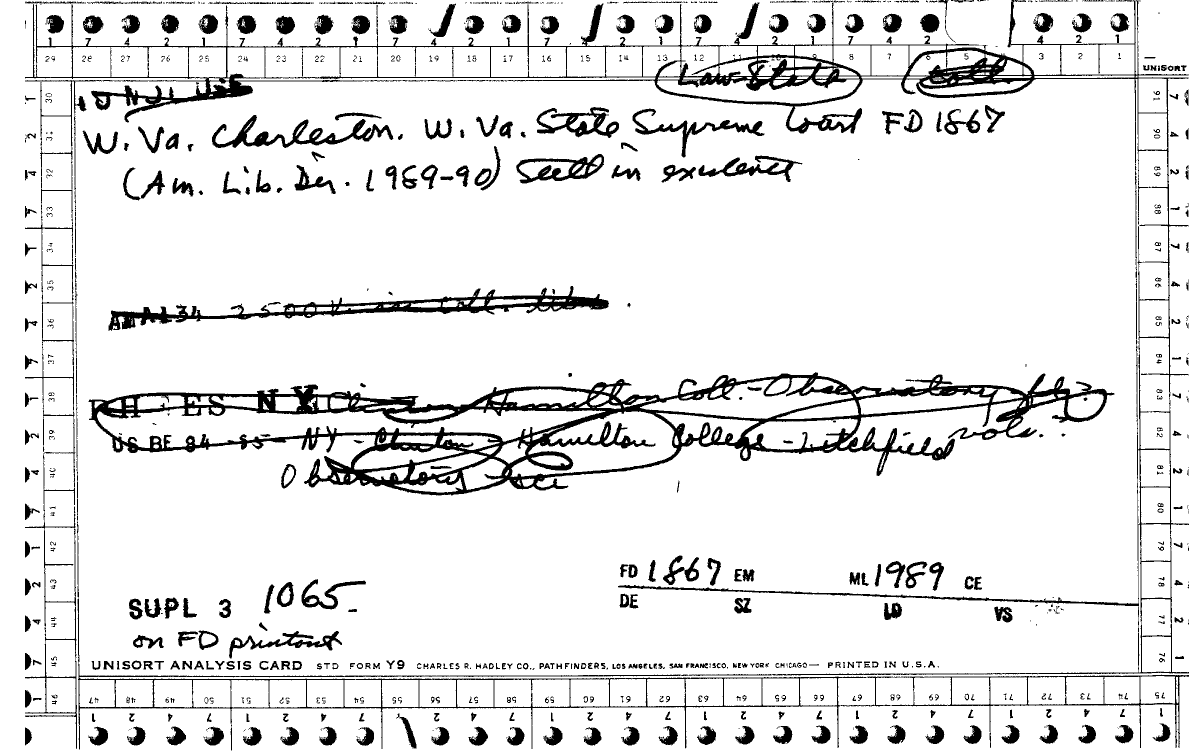 1 7 4 2 1 7 4 2 1 7 4 2 1 7 4 2 1 4 2 1
29 28 27 26 25 24 23 22 21 20 19 18 17 16 15 14 13 12 11 10 9 8 7 6 5 4 3 2 1 UNISORT
Law-State Coll
W. Va. Charleston. W. Va. State Supreme Court FD 1867
(Am. Lib. Dir. 1989-90) Still in existence
A134 2500 V. in coll. libs.
RHEES NY Clinton Hamilton Coll. - Observatory
US BE 84-85 - NY - Clinton - Hamilton College - Litchfield vols.
Observatory - sci
FD 1867 EM ML 1989 CE
DE SZ LD VS
SUPL 3 1065
on FD printout
UNISORT ANALYSIS CARD STD FORM Y9 CHARLES R. HADLEY CO., PATHFINDERS, LOS ANGELES, SAN FRANCISCO, NEW YORK CHICAGO— PRINTED IN U.S.A.
47 48 49 50 51 52 53 54 55 56 57 58 59 60 61 62 63 64 65 66 67 68 69 70 71 72 73 74 75
1 2 4 7 1 2 4 7 1 2 4 7 1 2 4 7 1 2 4 7 1 2 4 7 1